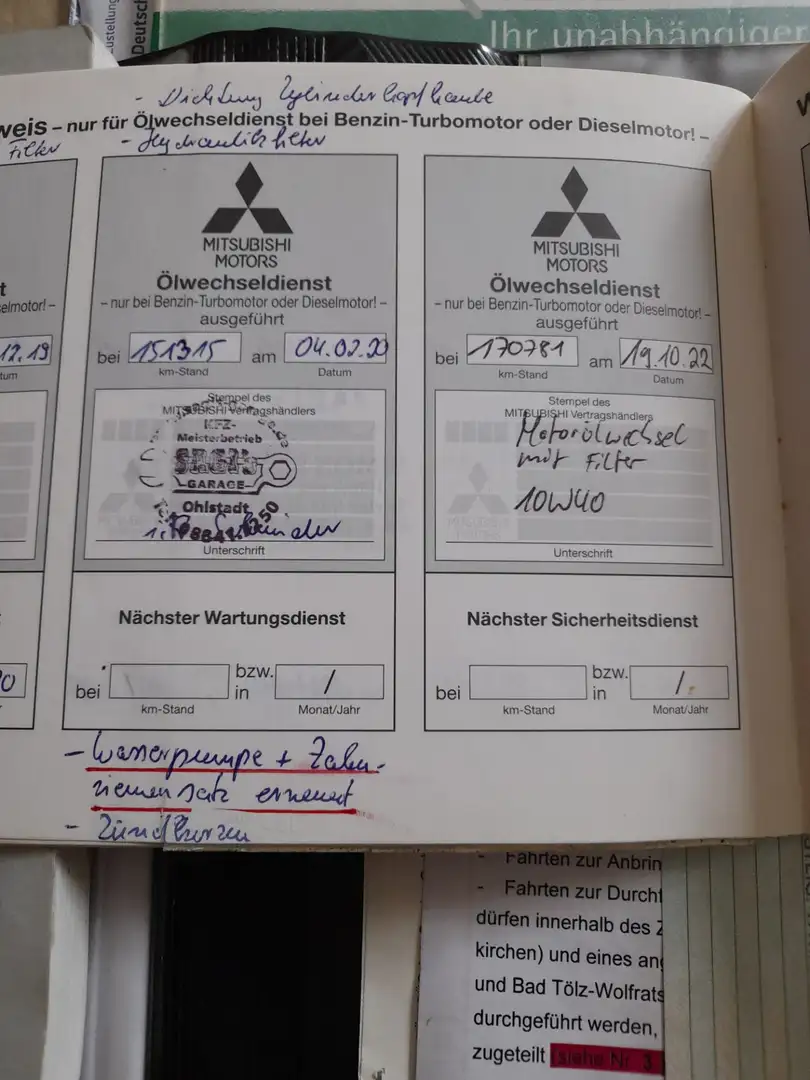 ustellung
Deutsch
Ihr unabhängiger
- Dichtung Zylinderkopfhaube
weis – nur für Ölwechseldienst bei Benzin-Turbomotor oder Dieselmotor! –
Filter
- Hydraulikfilter
t
selmotor! –
12.19
tum
0
MITSUBISHI
MOTORS
Ölwechseldienst
– nur bei Benzin-Turbomotor oder Dieselmotor! –
ausgeführt
bei 151315 am 04.02.20
km-Stand Datum
Stempel des
MITSUBISHI Vertragshändlers
KFZ-
Meisterbetrieb
GARAGE
Ohlstadt
Unterschrift
Nächster Wartungsdienst
bei bzw. in /
km-Stand Monat/Jahr
- Wasserpumpe + Zahn-
riemensatz erneuert
- Zündkerzen
MITSUBISHI
MOTORS
Ölwechseldienst
– nur bei Benzin-Turbomotor oder Dieselmotor! –
ausgeführt
bei 170781 am 19.10.22
km-Stand Datum
Stempel des
MITSUBISHI Vertragshändlers
Motorölwechsel
mit Filter
10W40
Unterschrift
Nächster Sicherheitsdienst
bei bzw. in /
km-Stand Monat/Jahr
- Fahrten zur Anbrin
- Fahrten zur Durchf
dürfen innerhalb des Z
kirchen) und eines ang
und Bad Tölz-Wolfrats
durchgeführt werden,
zugeteilt (siehe Nr. 3